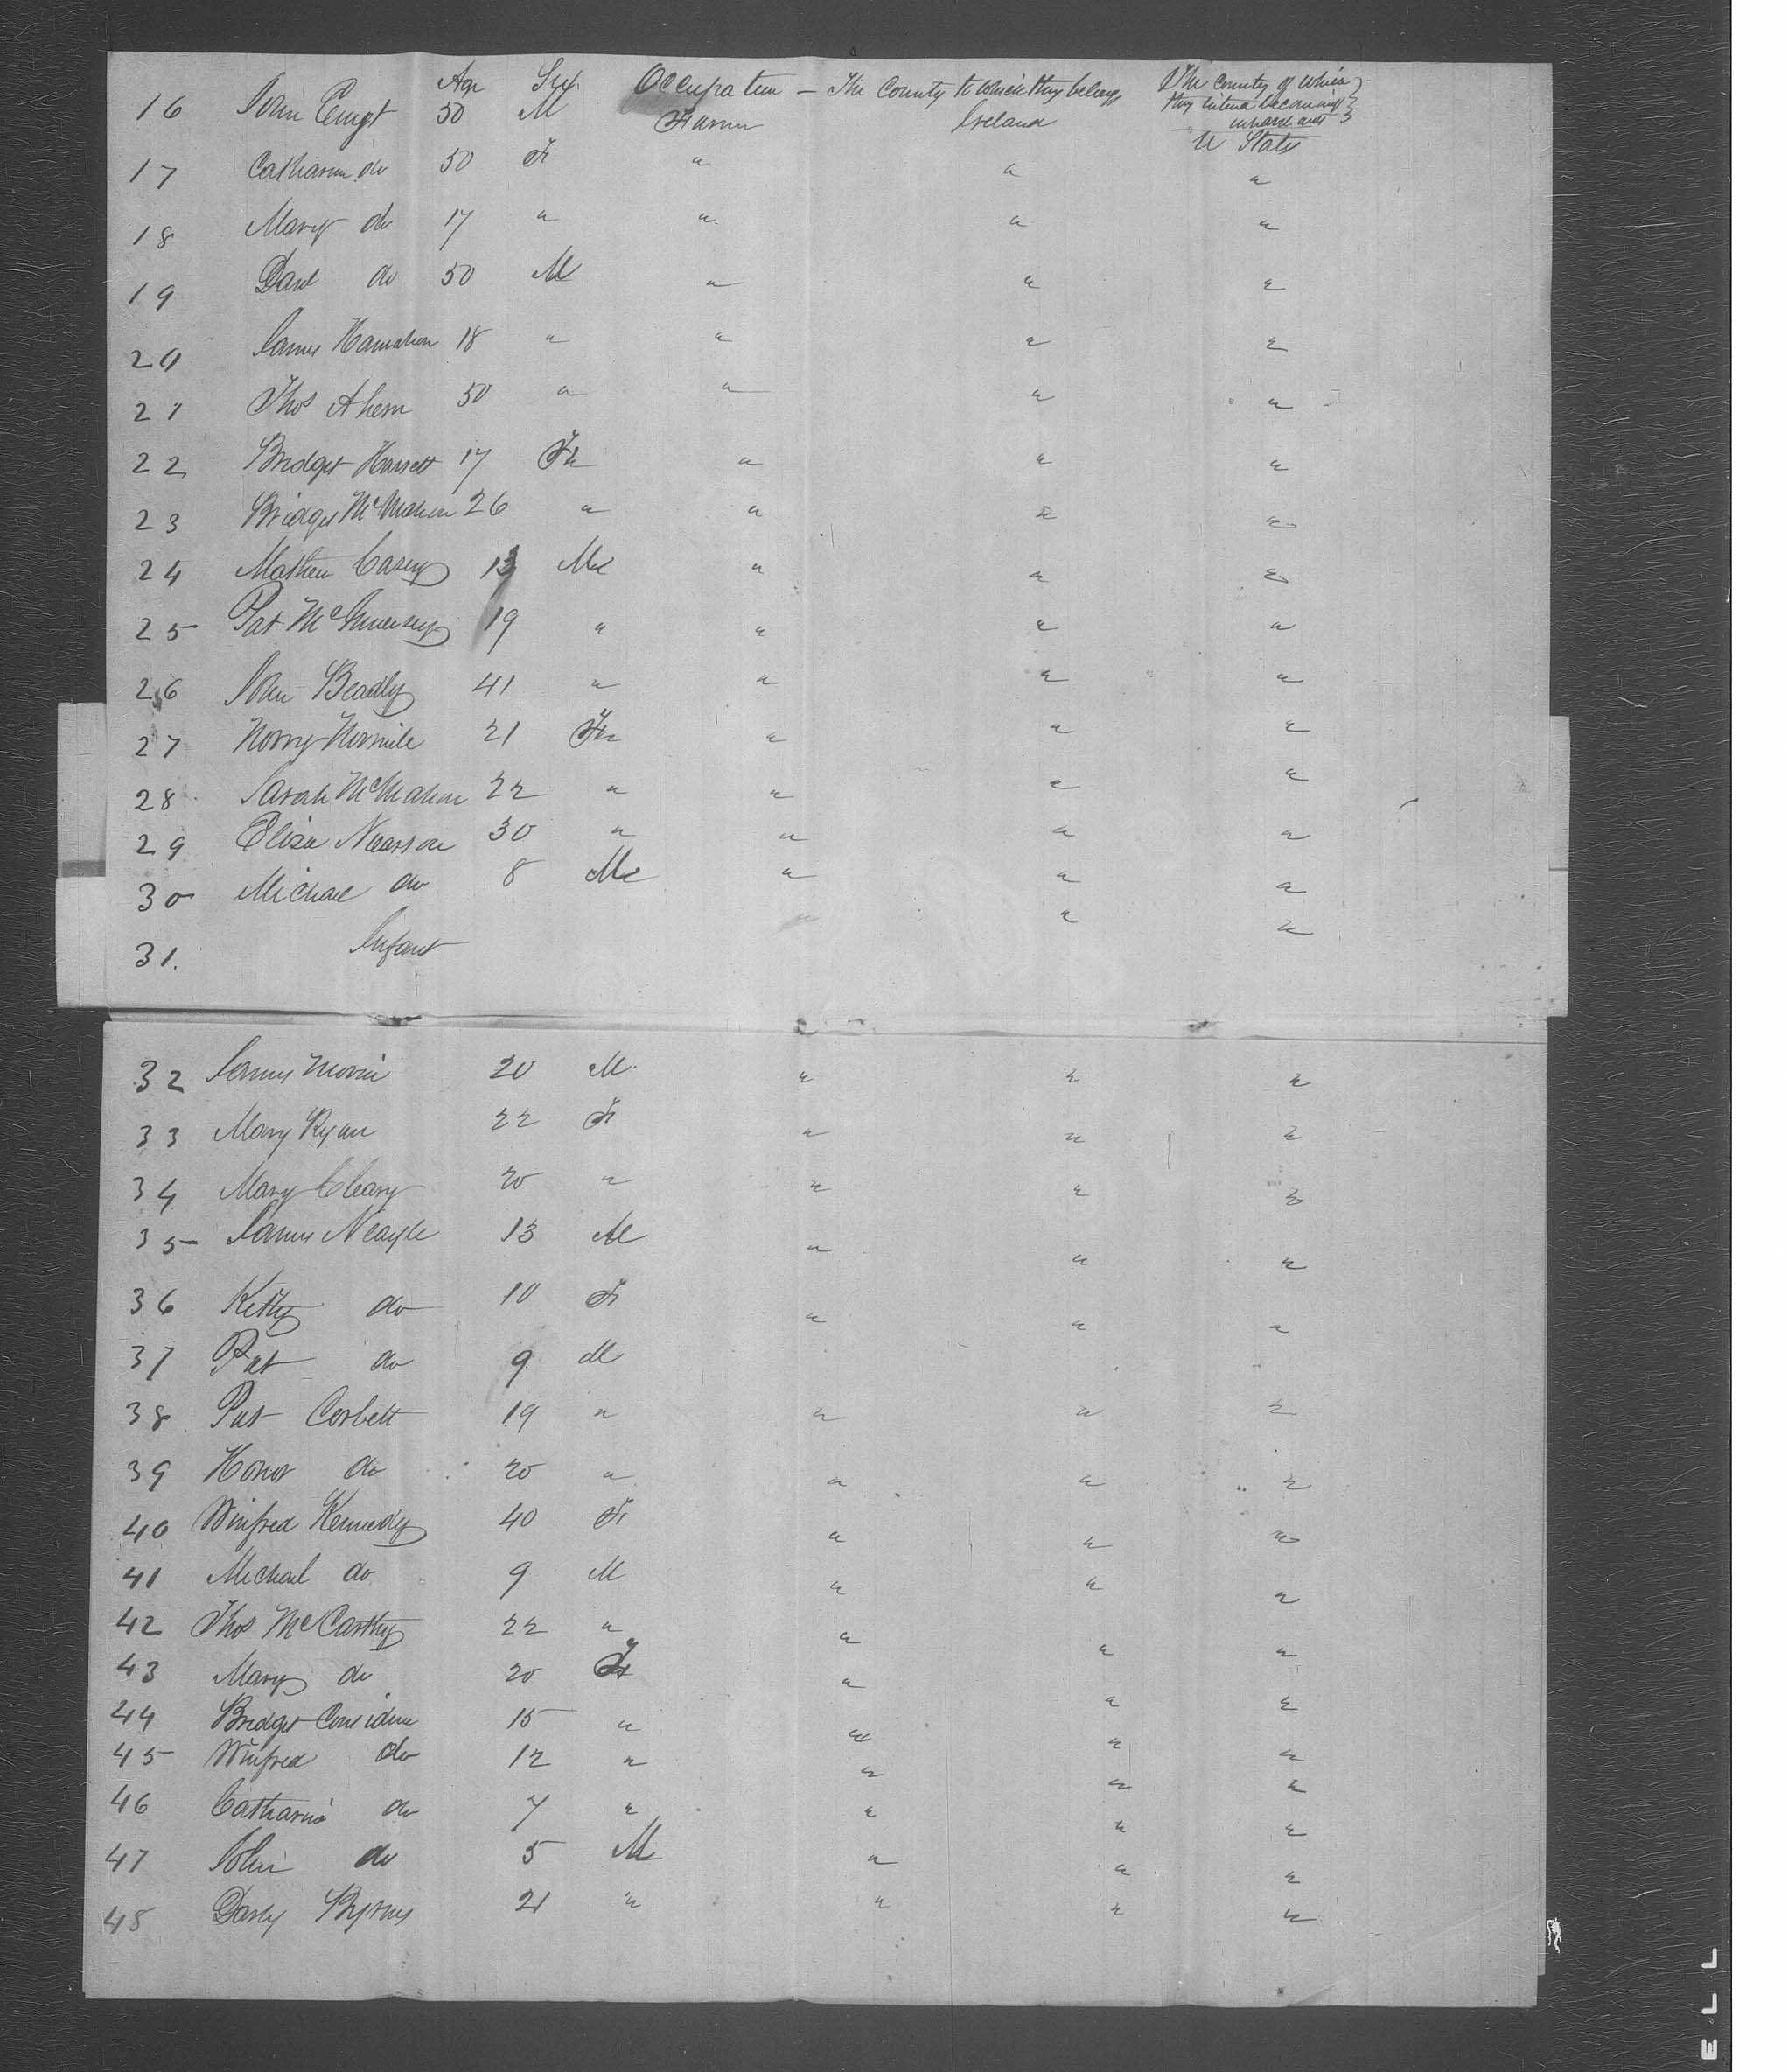 Age Sex Occupation – The County to which they belong The County of which
they intend becoming
inhabitants
16 John 50 M Farmer Ireland U States
17 Catharine do 50 Fe " " "
18 Mary do 17 " " " "
19 do 50 M " " "
20 James 18 " " " "
21 Thos Ahern 50 " " " "
22 Bridget Hassett 17 Fe " " "
23 Bridget McMahon 26 " " " "
24 Mathew Casey 13 Ml " " "
25 Pat 19 " " " "
26 John 41 " " " "
27 Norry Normile 21 Fe " " "
28 Sarah McMahon 22 " " " "
29 Eliza 30 " " " "
30 Michael do 8 Ml " " "
31. Infant " " "
32 James 20 M. " " "
33 Mary Ryan 22 Fe " " "
34 Mary Cleary 20 " " " "
35 James 13 M " " "
36 Kitty do 10 Fe " " "
37 Pat do 9 M
38 Pat Corbett 19 " " " "
39 Honor do 20 " " " "
40 Winfred Kennedy 40 Fe " " "
41 Michael do 9 M " " "
42 Thos McCarthy 22 " " " "
43 Mary do 20 Fe " " "
44 Bridget Considine 15 " " " "
45 Winfred do 12 " " " "
46 Catharine do 7 " " " "
47 John do 5 M " " "
48 21 " " " "
E L L